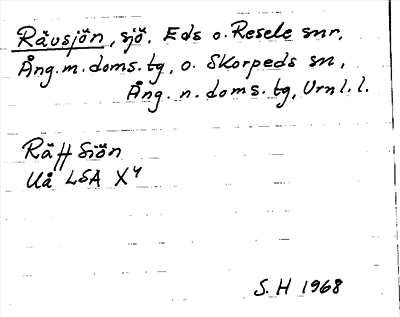 Rävsjön, sjö. Eds o. Resele snr,
Ång. m. doms. tg, o. Skorpeds sn,
Ång. n. doms. tg, Urnl. l.
Räff Siön
Uå LSA X4
S. H 1968